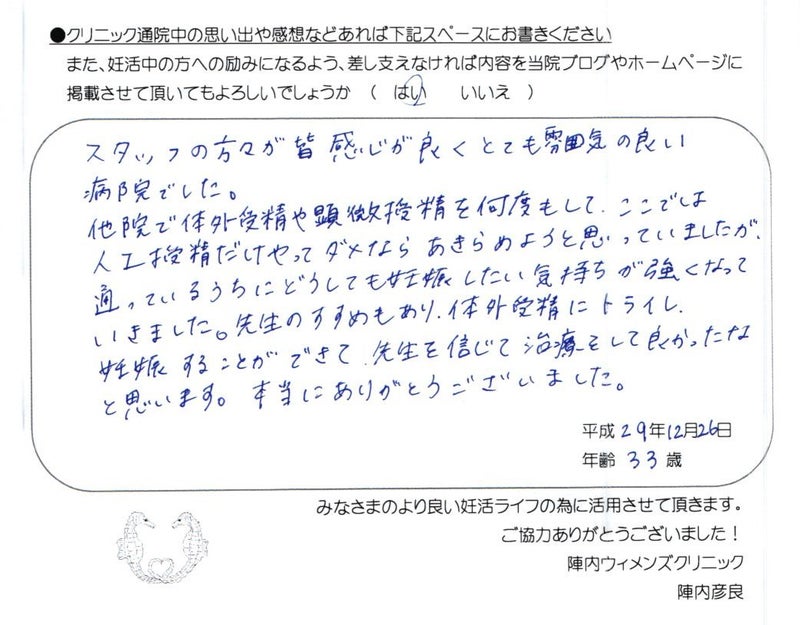 ●クリニック通院中の思い出や感想などあれば下記スペースにお書きください
また、妊活中の方への励みになるよう、差し支えなければ内容を当院ブログやホームページに
掲載させて頂いてもよろしいでしょうか （ はい いいえ ）
スタッフの方々が皆感じが良くとても雰囲気の良い
病院でした。
他院で体外受精や顕微授精を何度もして、ここでは
人工授精だけやってダメならあきらめようと思っていましたが、
通っているうちにどうしても妊娠したい気持ちが強くなって
いきました。先生のすすめもあり、体外受精にトライし、
妊娠することができて、先生を信じて治療をして良かったな
と思います。本当にありがとうございました。
平成29年12月26日
年齢 33 歳
みなさまのより良い妊活ライフの為に活用させて頂きます。
ご協力ありがとうございました！
陣内ウィメンズクリニック
陣内彦良